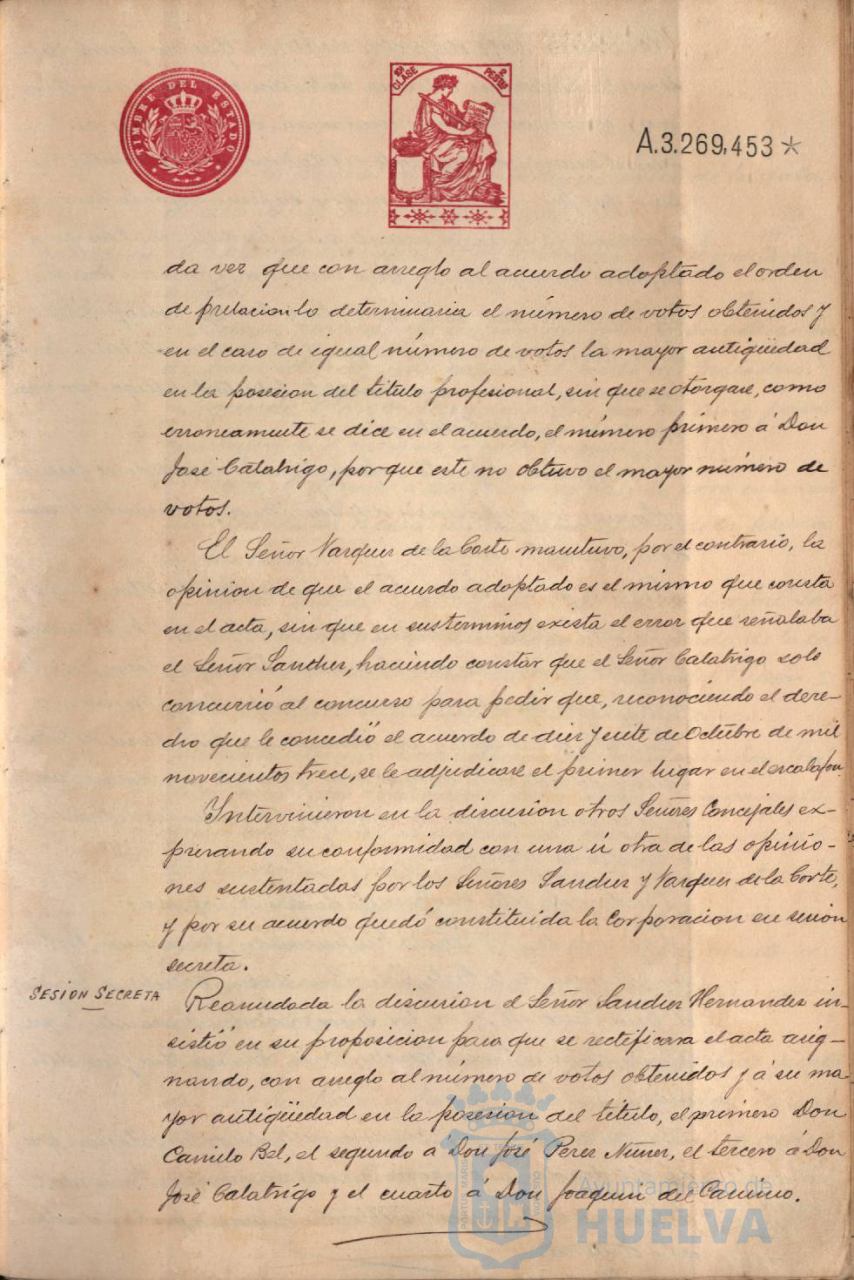 TIMBRE DEL ESTADO
10ª CLASE
2 PESETAS
A.3.269.453*
da vez que con arreglo al acuerdo adoptado el orden
de prelacion lo determinaria el número de votos obtenidos y
en el caso de igual número de votos la mayor antigüedad
en la posesion del titulo profesional, sin que se otorgase, como
erroneamente se dice en el acuerdo, el número primero á Don
José Calatrigo, porque este no obtuvo el mayor número de
votos.
El Señor Vazquez de la Corte mantuvo, por el contrario, la
opinion de que el acuerdo adoptado es el mismo que consta
en el acta, sin que en sus terminos exista el error que señalaba
el Señor Sanchez, haciendo constar que el Señor Calatrigo solo
concurrió al concurso para pedir que, reconociendo el dere-
cho que le concedió el acuerdo de diez y siete de Octubre de mil
novecientos trece, se le adjudicase el primer lugar en el escalafon
Intervinieron en la discusion otros Señores Concejales ex-
presando su conformidad con una ú otra de las opinio-
nes sustentadas por los Señores Sanchez y Vazquez de la Corte,
y por su acuerdo quedó constituida la Corporacion en sesión
secreta.
SESION SECRETA
Reanudada la discusion el Señor Sanchez Hernandez in-
sistió en su proposicion para que se rectificara el acta asig-
nando, con arreglo al número de votos obtenidos y á su ma-
yor antigüedad en la posesion del titulo, el primero Don
Camilo Bel, el segundo á Don José Perez Nuñez, el tercero á Don
José Calatrigo y el cuarto á Don Joaquin del Camino.
Ayuntamiento de
HUELVA